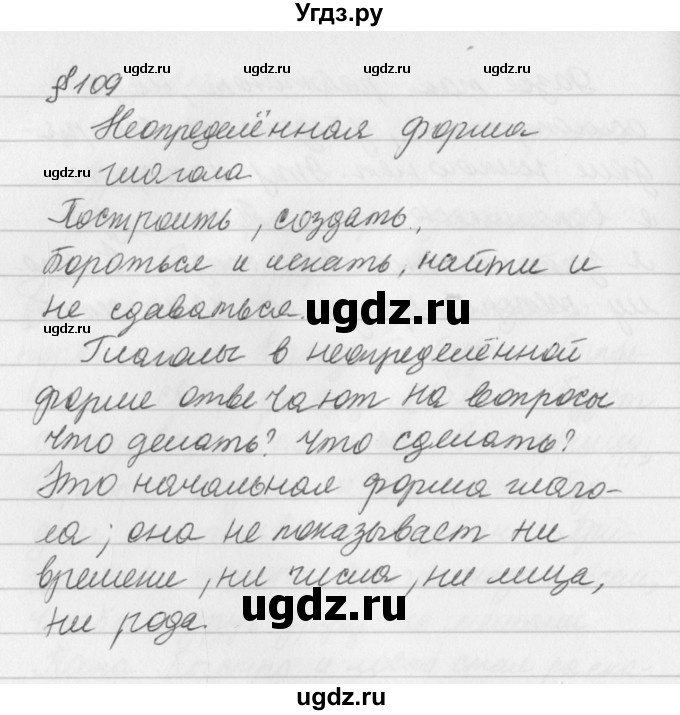 Угдз.ру
§109
ugdz.ru ugdz.ru ugdz.ru
Неопределённая форма
ugdz.ru глагола.
Построить, создать,
бороться и искать, найти и
не сдаваться.
ugdz.ru ugdz.ru
Глаголы в неопределённой
форме отвечают на вопросы
что делать? что сделать?
Это начальная форма глаго-
ла; она не показывает ни
времени, ни числа, ни лица,
ugdz.ru
ни рода.
ugdz.ru